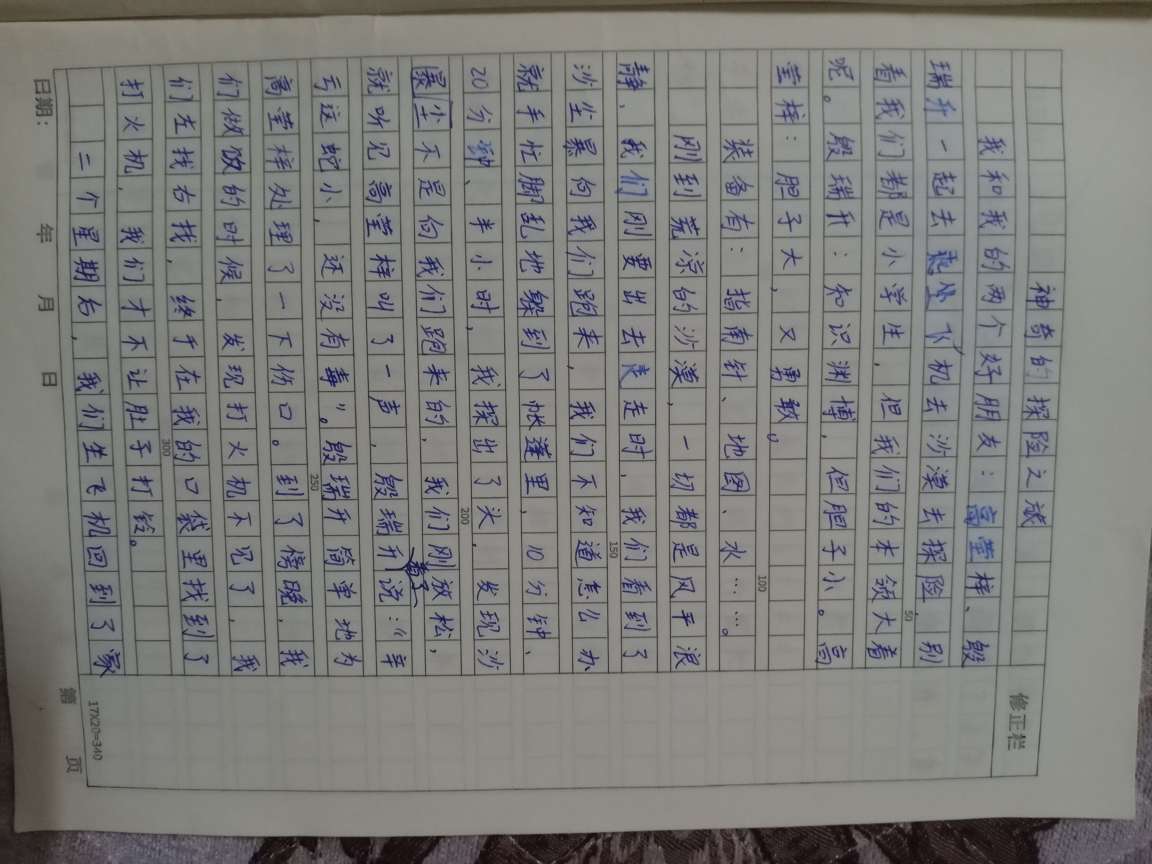 神奇的探险之旅
修正栏
我和我的两个好朋友：高莹梓、殷
瑞升一起去乘坐飞机去沙漠去探险，别
看我们都是小学生，但我们的本领大着
50
呢。殷瑞升：知识渊博，但胆子小。高
莹梓：胆子大，又勇敢。
装备有：指南针、地图、水……。
100
刚到荒凉的沙漠，一切都是风平浪
静，我们刚要出去走走时，我们看到了
150
沙尘暴向我们跑来，我们不知道怎么办
就手忙脚乱地躲到了帐蓬里，10分钟、
20分钟、半小时，我探出了头，发现沙
200
尘不是向我们跑来的，我们刚放松，
就听见高莹梓叫了一声，殷瑞升看了说：“幸
亏这蛇小，还没有毒”。殷瑞升简单地为
250
高莹梓处理了一下伤口。到了傍晚，我
们做饭的时候，发现打火机不见了，我
们左找右找，终于在我的口袋里找到了
300
打火机，我们才不让肚子打铃。
二个星期后，我们坐飞机回到了家
17X20=340
日期： 年 月 日
第 页